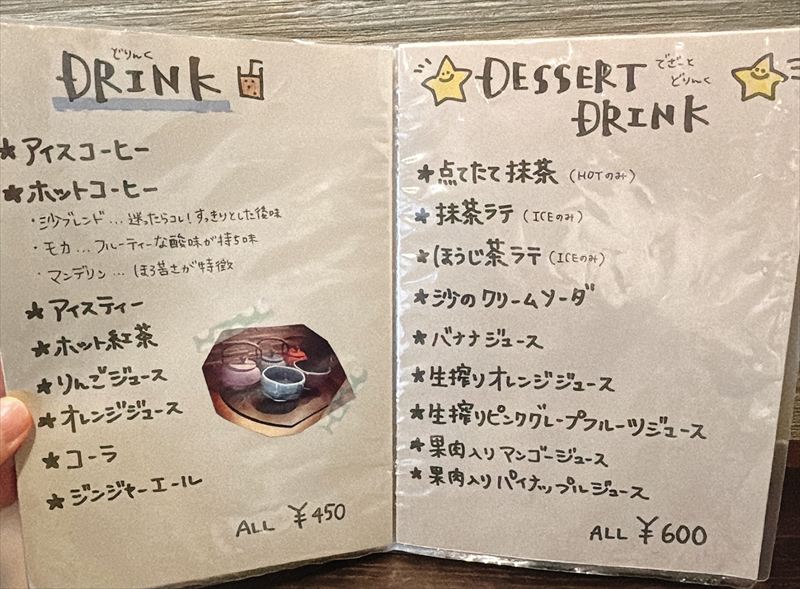 どりんく
DRINK
★アイスコーヒー
★ホットコーヒー
・沙ブレンド…迷ったらコレ!すっきりとした後味
・モカ…フルーティーな酸味が持ち味
・マンデリン…ほろ苦さが特徴
★アイスティー
★ホット紅茶
★りんごジュース
★オレンジジュース
★コーラ
★ジンジャーエール
ALL ¥450
DESSERT でざーと
DRINK どりんく
★点てたて抹茶(HOTのみ)
★抹茶ラテ(ICEのみ)
★ほうじ茶ラテ(ICEのみ)
★沙のクリームソーダ
★バナナジュース
★生搾りオレンジジュース
★生搾りピンクグレープフルーツジュース
★果肉入りマンゴージュース
★果肉入りパイナップルジュース
ALL ¥600